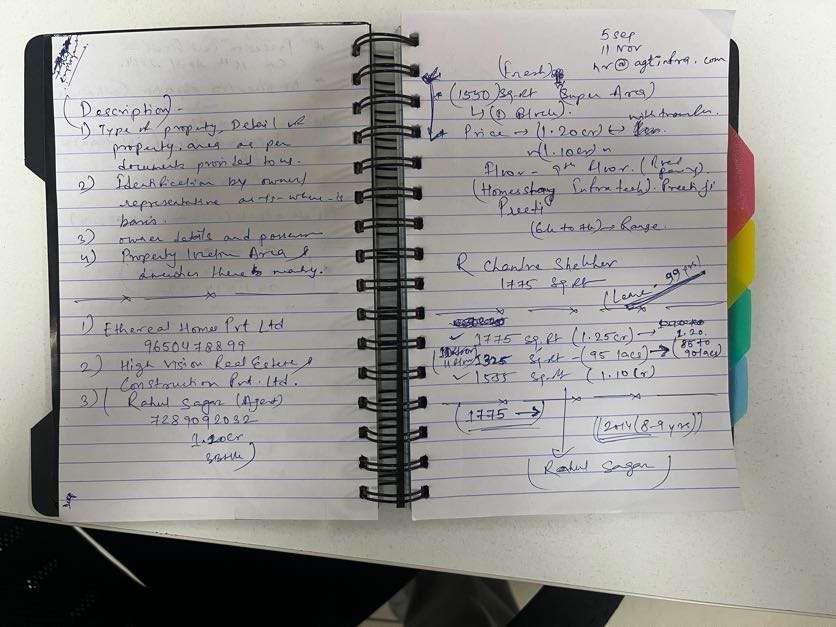 (Description) -
1) Type of property, Detail of
property, area as per
documents provided to us.
2) Identification by owner/
representative as-is-where-is
basis.
3) owner details and
4) Property Area &
there
1) Ethereal Home Pvt Ltd
9650478899
2) High Vision Real Estate &
Construction Pvt. Ltd.
3) ( Rahul Sagar (Agent)
7289092032
1.20cr
3BHK)
5 Sep
11 Nov
hr@agtinfra.com
(Fresh)
(1550) Sq.Rt (Super Area)
↳ (D Block).
Price → (1.20cr) ↔ with transfer.
(1.10cr)
Floor - 9th Floor. (Road
(Homesstong Infratech). Preetiji
Preeti
(6th to 7th) → Range.
R Chandra Shekher
1775 Sq.Rt
(Lease - 99 yrs)
✓ 1775 Sq.Rt (1.25cr) → 1.20.
1325 Sq.Rt - (95 lacs) → (85 to
90 lacs)
✓ 1535 Sq.Rt (1.10cr)
(1775 →)
(2014 (8-9 yrs))
(Rahul Sagar)